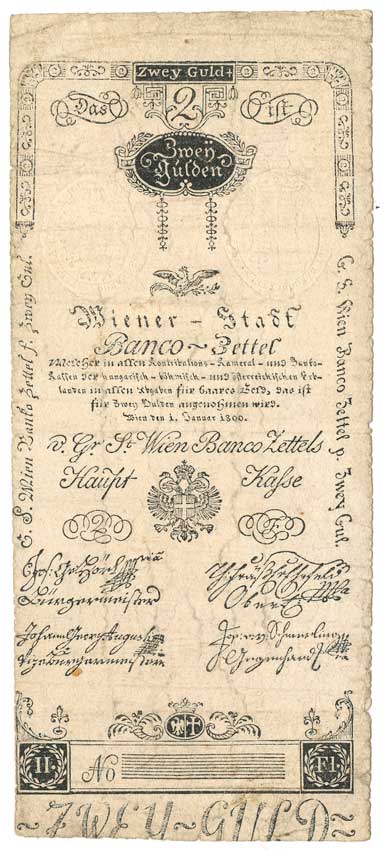 Zwey Guld
Das 2 ist
Zwey
Gulden
Wiener - Stadt
Banco ~ Zettel
Welcher in allen Kontributions - Kameral - und Banko-
Kassen der hungarisch - böhmisch - und österreichischen Erb-
landen in allen Abgaben für baares Geld, das ist
für Zwey Gulden angenommen wird.
Wien den 1. Januar 1800.
v. Gr St. Wien Banco Zettels
Haupt Kasse
2 F
Bürgermeister
Johann Georg Augusti
Vizebürgermeister
G. S. Wien Banko Zettel f. Zwey Gul.
G. S. Wien Banco Zettel p. Zwey Gul
II. No Fl.
ZWEY ~ GULD